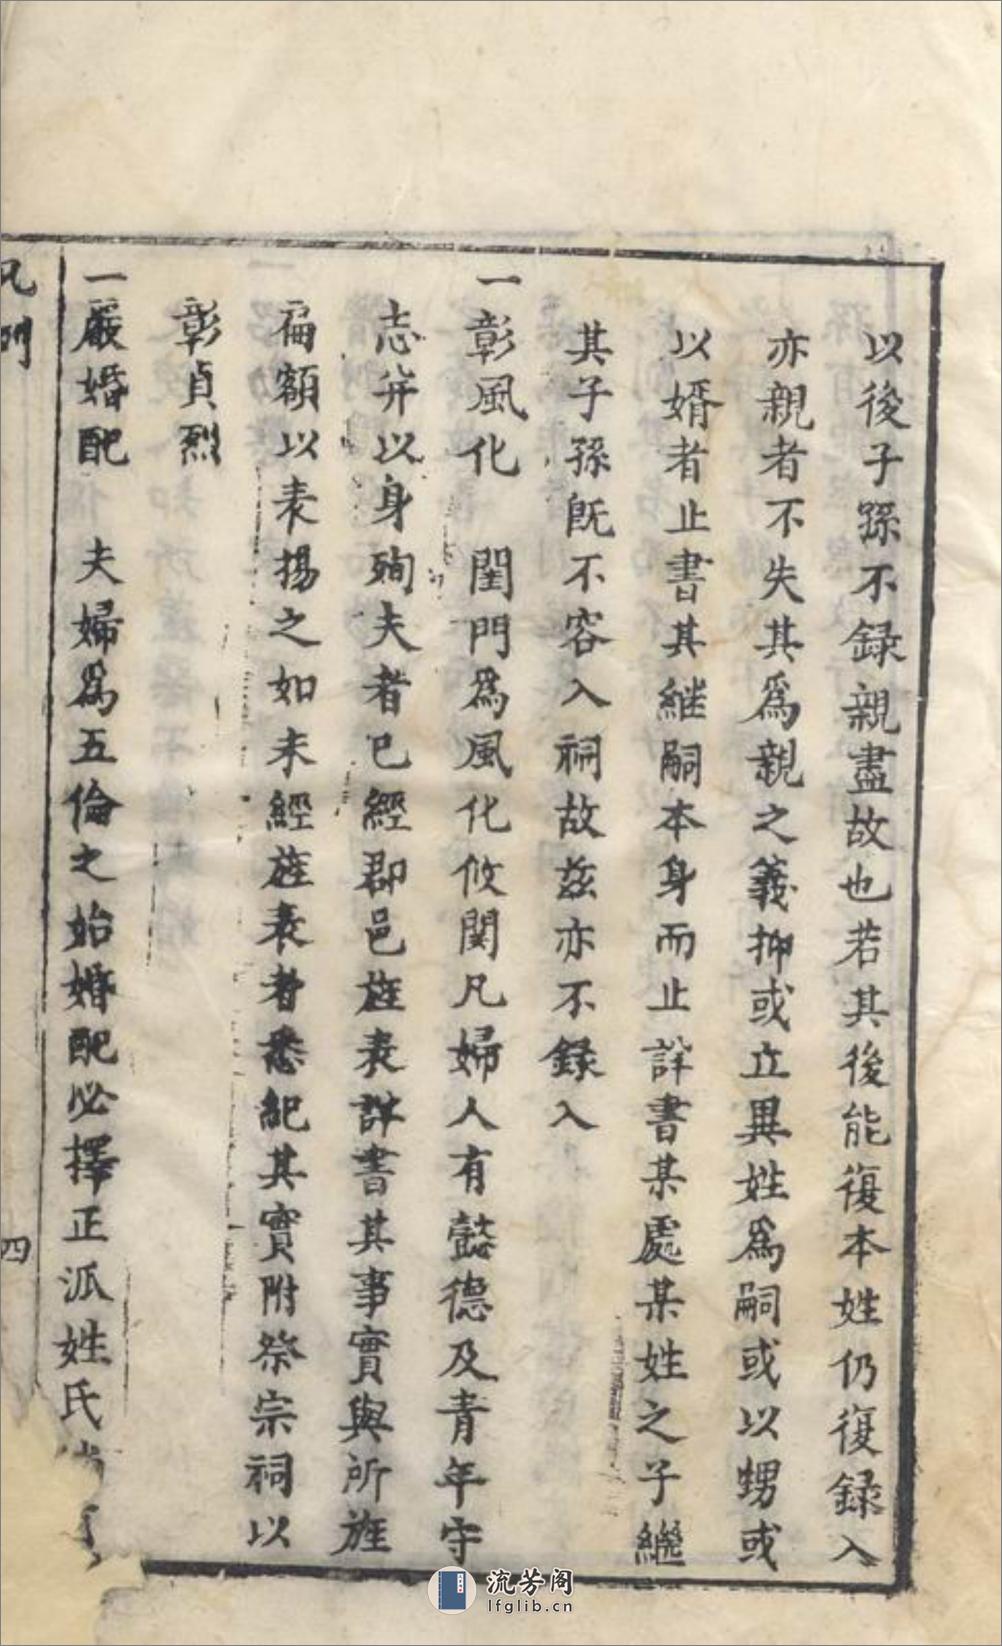 以後子孫不録親盡故也若其後能復本姓仍復録入
亦親者不失其為親之義抑或立異姓為嗣或以甥或
以婿者止書其継嗣本身而止詳書某處某姓之子繼
其子孫既不容入祠故兹亦不録入
一彰風化 閨門為風化攸関凡婦人有懿德及青年守
志并以身殉夫者已經郡邑旌表詳書其事實與所旌
扁額以表揚之如未經旌表者悉紀其實附祭宗祠以
彰貞烈
一嚴婚配 夫婦為五倫之始婚配必擇正派姓氏
凡例
四
流芳阁
lfglib.cn